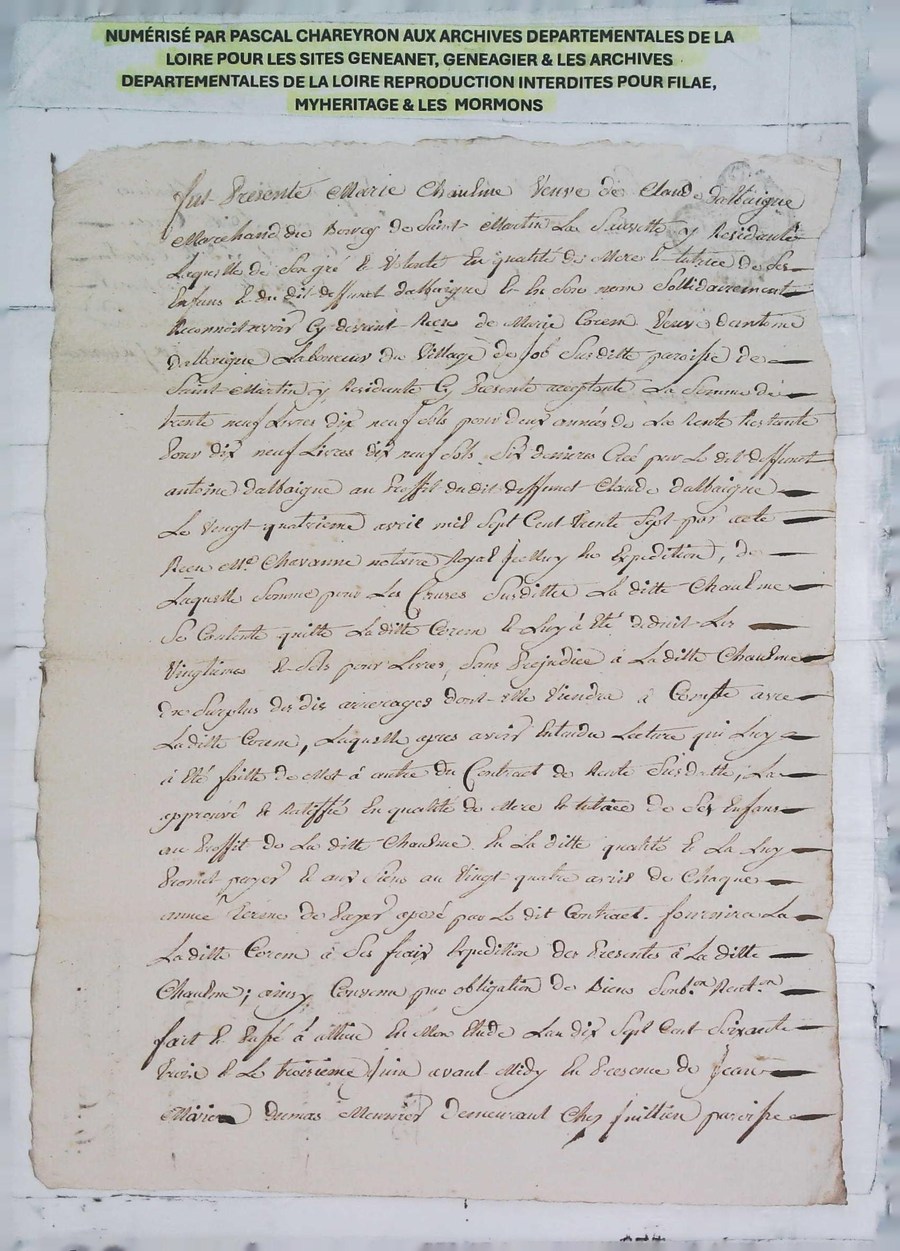 NUMÉRISÉ PAR PASCAL CHAREYRON AUX ARCHIVES DEPARTEMENTALES DE LA
LOIRE POUR LES SITES GENEANET, GENEAGIER & LES ARCHIVES
DEPARTEMENTALES DE LA LOIRE REPRODUCTION INTERDITES POUR FILAE,
MYHERITAGE & LES MORMONS
fut Presente Marie Chaulme Veuve de Claude dalbaigue
Marchand du Bourg de Saint Martin La Sauvetté y Residante
Laquelle de Son gré et Volonté En qualité de Mere et tutrice de Ses
Enfans et du dit deffunct dalbaigue et En Son nom Sollidairement
Reconnoit avoir Cy devant Reçu de Marie Corem Veuve dantoine
dalbaigue Laboureur du Village de Job Susditte paroisse de
Saint Martin y Residante Cy Presente acceptante La Somme de
trente neuf Livres dix neuf Sols pour deux années de La Rente Restante
Pour dix neuf Livres dix neuf Sols Six deniers Créé par Le dit deffunct
antoine dalbaigue au Proffit du dit deffunct Claude dalbaigue
Le Vingt quatrieme avril mil Sept Cent trente Sept par acte
Reçu Me. Chavanne notaire Royal Expedition, de
Laquelle Somme pour Les Causes Susdittes La ditte Chaulme
Se Contente quitte La ditte Corem et Luy a Eté deduit Les
Vingtiemes et Sols pour Livres, Sans Prejudice à La ditte Chaulme
du Surplus des dis arrerages dont Elle Viendra à Compte avec
La ditte Corem, Laquelle apres avoir Entendu Lecture qui Luy
à Eté faitte de Mot à autre du Contract de Rente Susdatté, La
approuvé et Ratiffié En qualité de Mere et tutrice de Ses Enfans
au Proffit de La ditte Chaulme En La ditte qualité et La Luy
Promet payer et aux Siens au Vingt quatre avril de Chaque
année terme de Payer aposé par Le dit Contract. fournira La
La ditte Corem à Ses fraix Expedition des Presentes à La ditte
Chaulme; ainsy Convenu par obligation de Biens Renton.
fait et Passé à allieu En Mon Etude L'an dix Sept Cent Soixante
trois et Le troisieme Juin avant Midy En Presence de Jean
Marie dumas Meunier demeurant Chez paroisse